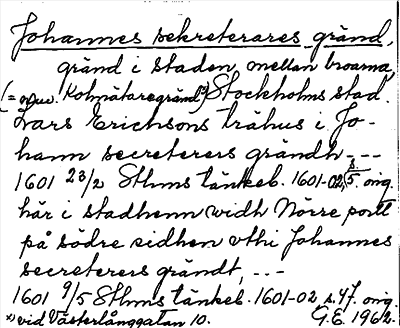 Johannes sekreterares gränd,
gränd i staden mellan broarna,
(= nuv. Kolmätaregränd) x) Stockholms stad.
Lars Erichsons trähus i Jo-
hann secreterers gründh ---
1601 23/2 Sthms tänkeb. 1601-02, s. 5. orig.
här i stadhenn widh Nörre portt
på södre sidhen uthi Johannes
secreterers gråndt, ---
1601 9/5 Sthms tänkeb. 1601-02 s. 47. orig.
x) vid Västerlånggatan 10. G.E. 1962.